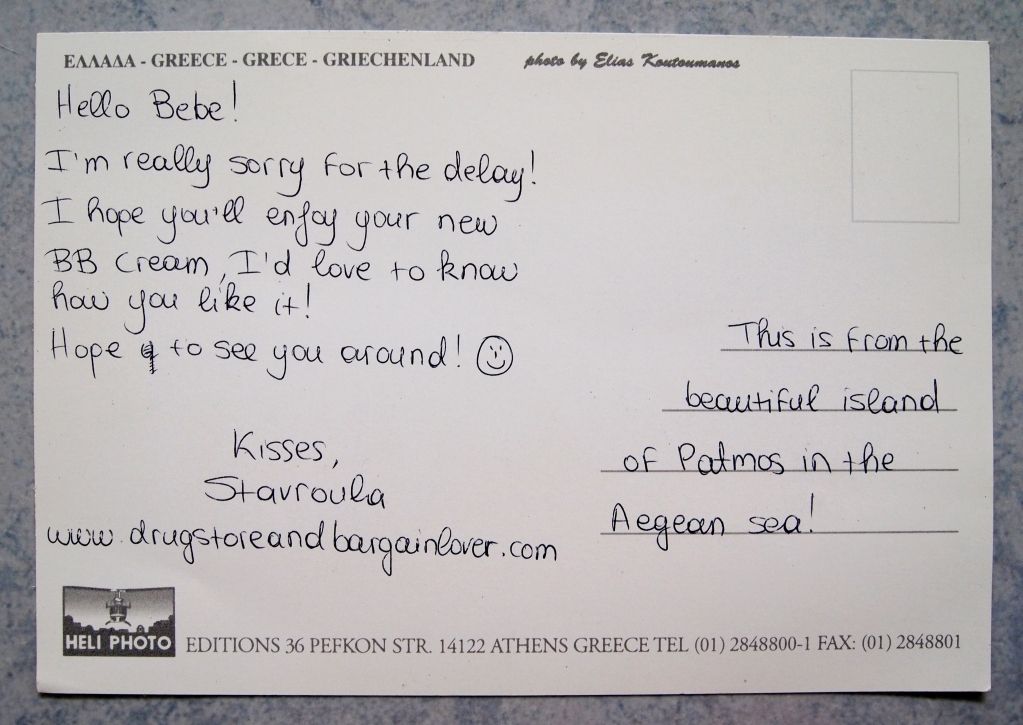 ΕΛΛΑΔΑ - GREECE - GRECE - GRIECHENLAND
photo by Elias Koutoumanos
Hello Bebe!
I'm really sorry for the delay!
I hope you'll enjoy your new
BB Cream, I'd love to know
how you like it!
Hope to see you around! ☺
Kisses,
Stavroula
www.drugstoreandbargainlover.com
This is from the
beautiful island
of Patmos in the
Aegean sea!
HELI PHOTO
EDITIONS 36 PEFKON STR. 14122 ATHENS GREECE TEL (01) 2848800-1 FAX: (01) 2848801